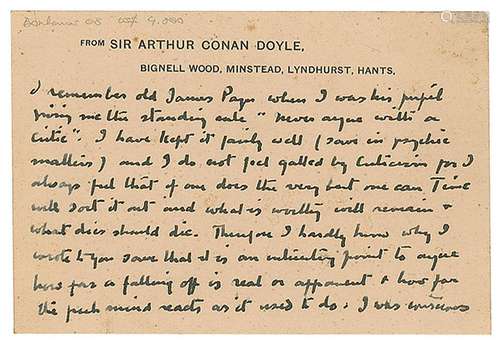 FROM SIR ARTHUR CONAN DOYLE,
BIGNELL WOOD, MINSTEAD, LYNDHURST, HANTS.
I remember old James Payn when I was his pupil
giving me the standing rule "Never argue with a
critic". I have kept it fairly well (save in psychic
matters) and I do not feel galled by criticism for I
always feel that if one does the very best one can Time
will sort it out and what is worthy will remain &
what dies should die. Therefore I hardly know why I
wrote to you save that it is an interesting point to argue
how far a falling off is real or apparent & how far
the mind reacts as it used to do. I was conscious